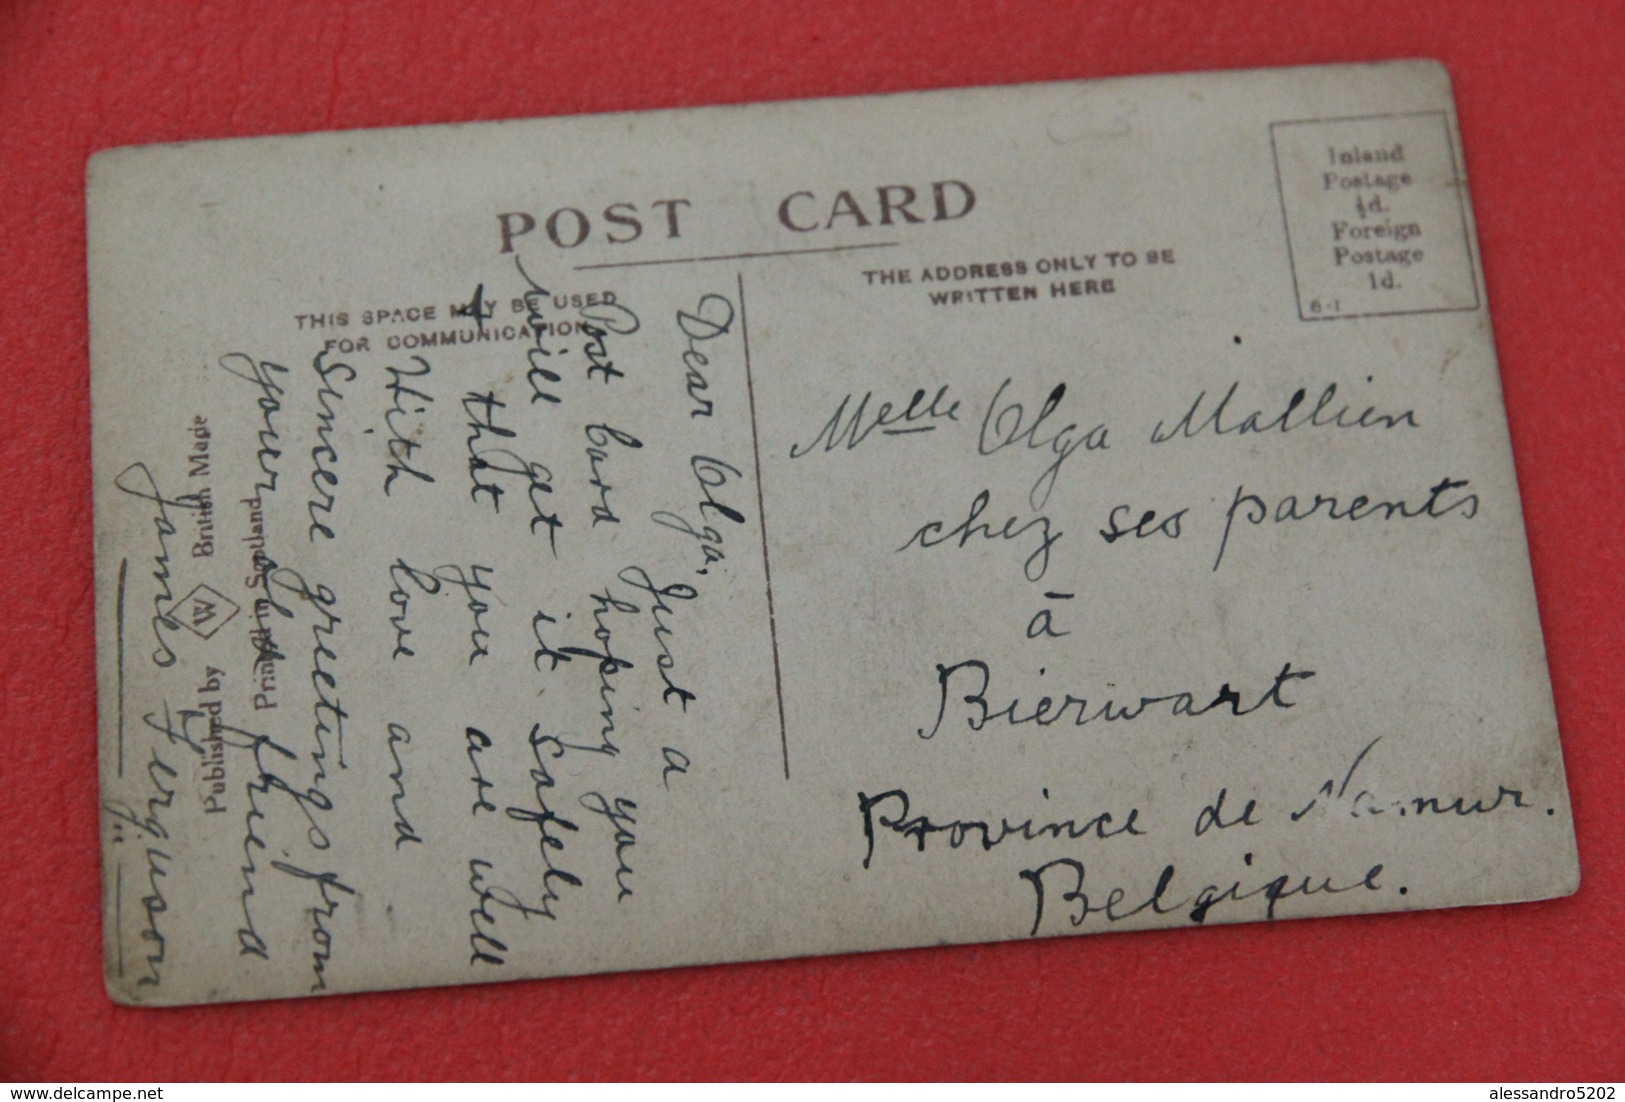 POST CARD
THIS SPACE MAY BE USED
FOR COMMUNICATION
THE ADDRESS ONLY TO BE
WRITTEN HERE
Inland
Postage
½d.
Foreign
Postage
1d.
B-1
Dear Olga, Just a
Post Card hoping you
will get it safely
+ that you are well
With love and
Sincere greetings from
your old friend
James Ferguson
Melle Olga Mallien
chez ses parents
à
Bierwart
Province de Namur.
Belgique.
Published by W British Made
Printed in Scotland
alessandro5202